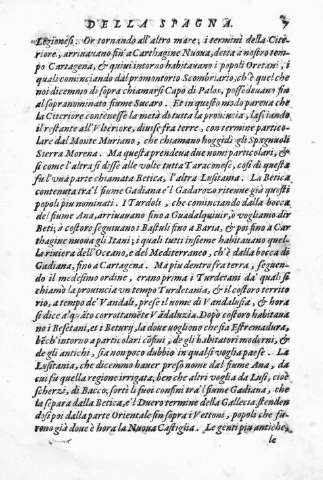 DELLA SPAGNA.
Legionesi. Or tornando all'altro mare, i termini della Cite-
riore, arriuauano fin'a Carthagine Nuoua, detta a nostro tem-
po Cartagena, & quiui intorno habitauano i popoli Oretani, i
quali cominciando dal promontorio Scombrario, ch'è quel che
noi dicemmo di sopra chiamarsi Capo di Palos, possedeuano fin
al sopranominato fiume Sucaro. Et in questo modo parena che
la Citeriore contenesse la metà di tutta la prouincia, lasciando
il restante all'Vlteriore, diuise fra terre, con termine partico-
lare dal Monte Mariano, che chiamano hoggidì gli Spagnuoli
Sierra Morena. Ma questa prendeua due nomi particolari, &
si come l'altra si disse alle volte tutta Taraconese, così di questa
fu l'una parte chiamata Betica, l'altra Lusitania. La Betica
contenuta tra'l fiume Gadiana è'l Gadarozo ritenne già questi
popoli piu nominati. I Turdoli, che cominciando dalla bocca
del fiume Ana, arriuauano fino a Guadalquiuir, ò vogliamo dir
Beti; à costoro seguiuano i Bastuli fino a Baria, & poi fino a Car
thagine nuoua gli Itani; i quali tutti insieme habitauano quel-
la riuiera dell'Oceano, e del Mediterraneo, ch'è dalla bocca di
Gadiana, fino a Cartagena. Ma piu dentro fra terra, seguen-
do il medesimo ordine, erano prima i Turdetani da' quali si
chiamò la prouincia vn tempo Turdetania, & il costoro territo
rio, a tempo de' Vandali, prese il nome di Vandalusia, & hora
si dice a'quato corrottamẽte Vãdaluzia. Dopò costoro habitaua
no i Besetani, et i Betury, la doue vogliono che sia Estremadura,
bẽch'intorno a particolari cõfini, de gli habitatori moderni, &
de gli antichi, sia non poco dubbio in qual si voglia paese. La
Lusitania, che dicemmo hauer preso nome dal fiume Ana, da
cui fu quella regione irrigata, ben che altri voglia da Lusi, cioè
scherzi, di Bacco, sortì li suoi confini tra'l fiume Gadiana, che
la separa dalla Betica, e'l Duero termine della Gallecia. stenden
dosi poi dalla parte Orientale sin sopra i Vettoni, popoli che fu-
rono già doue è hora la Nuoua Castiglia. Le genti piu antiche,
le